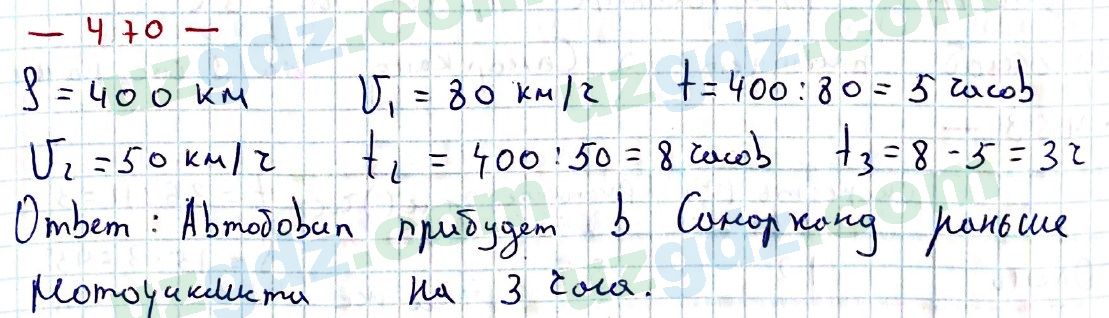 — 470 —
S = 400 км V₁ = 80 км/ч t = 400 : 80 = 5 часов
V₂ = 50 км/ч t₂ = 400 : 50 = 8 часов t₃ = 8 - 5 = 3 ч
Ответ : Автобовил прибудет в Самарканд раньше
мотоциклиста на 3 часа.
uzgdz.com